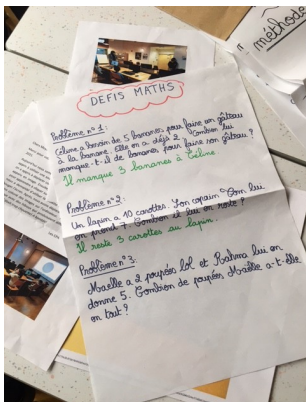 méthode
DEFIS MATHS
Problème n°1:
Céline a besoin de 5 bananes pour faire un gâteau
à la banane. Elle en a déjà 2. Combien lui
manque-t-il de bananes pour faire son gâteau ?
Il manque 3 bananes à Céline.
Problème n°2:
Un lapin a 10 carottes. Son copain Tom lui
en prend 7. Combien il lui en reste ?
Il reste 3 carottes au lapin.
Problème n°3:
Maelle a 2 poupées lol et Rahma lui en
donne 5. Combien de poupées Maëlle a-t-elle
en tout ?